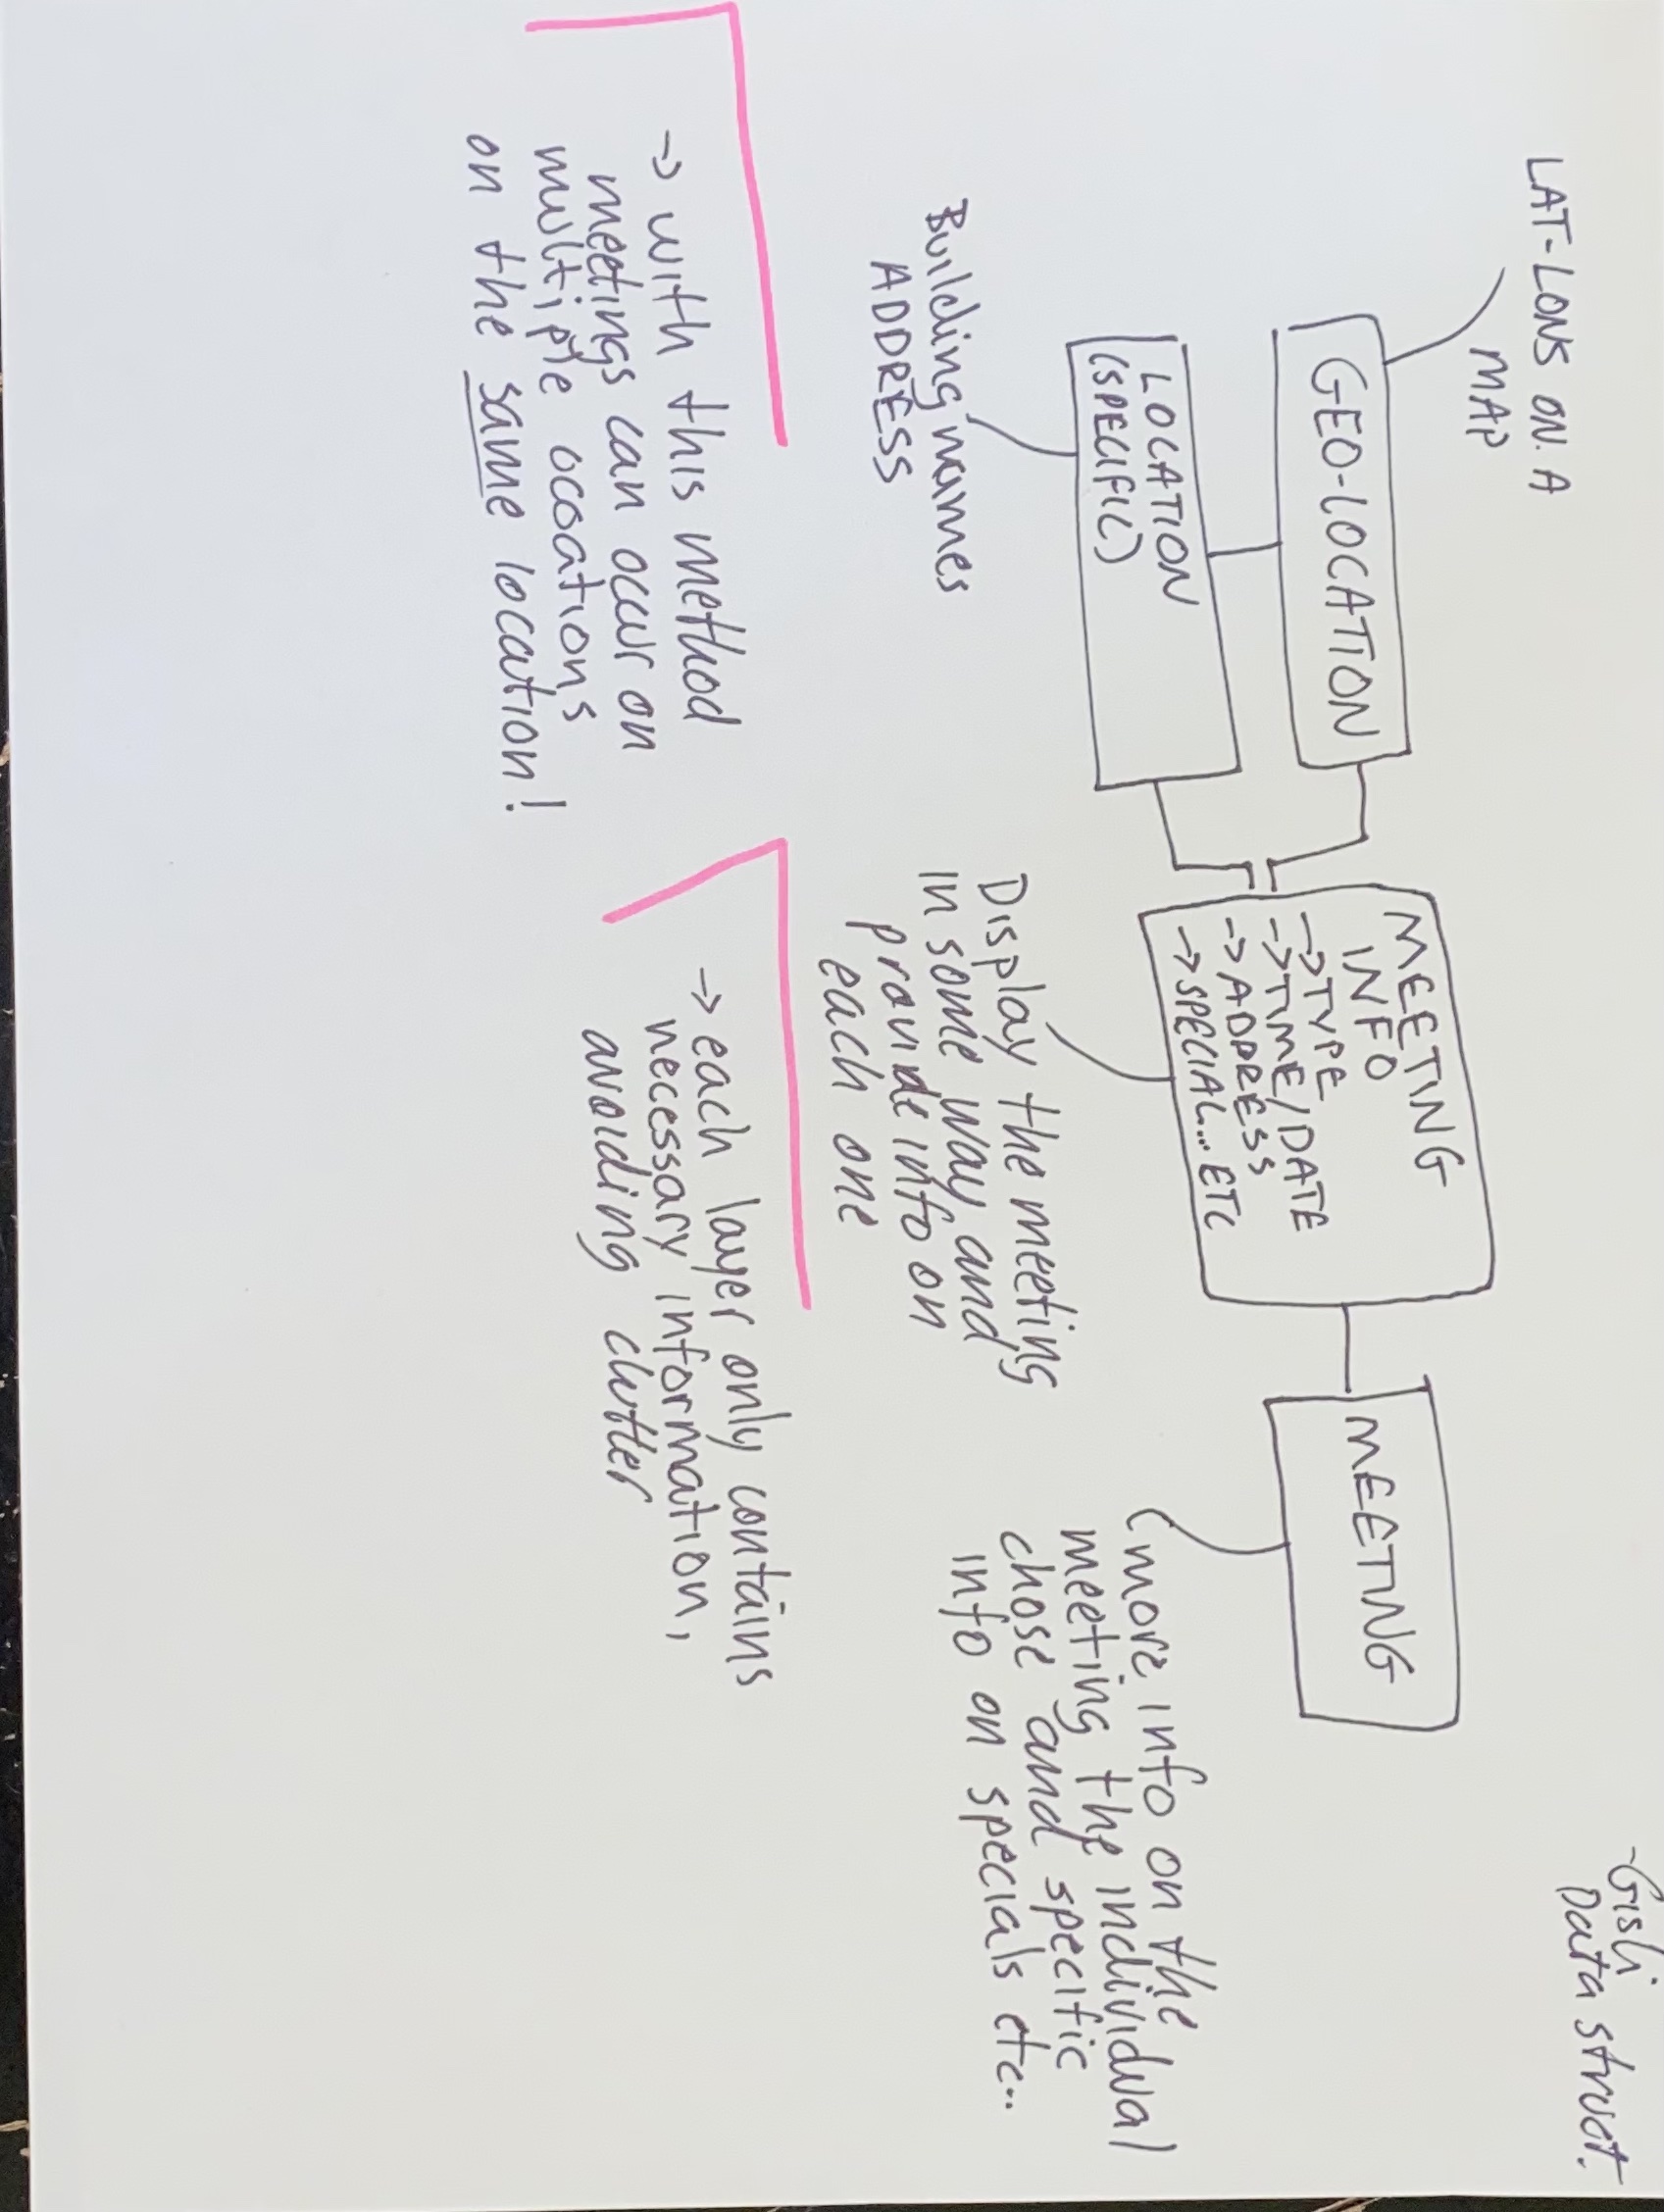 -Gisli
Data struct.
LAT-LONS ON A
MAP
GEO-LOCATION
LOCATION
(SPECIFIC)
Building names
ADDRESS
MEETING
INFO
->TYPE
->TIME/DATE
->ADDRESS
->SPECIAL... ETC
Display the meeting
in some way and
provide info on
each one
MEETING
(more info on the
meeting the individual
chose and specific
info on specials etc...
-> with this method
meetings can occur on
multiple ocoations
on the same location!
-> each layer only contains
necessary information,
avoiding clutter